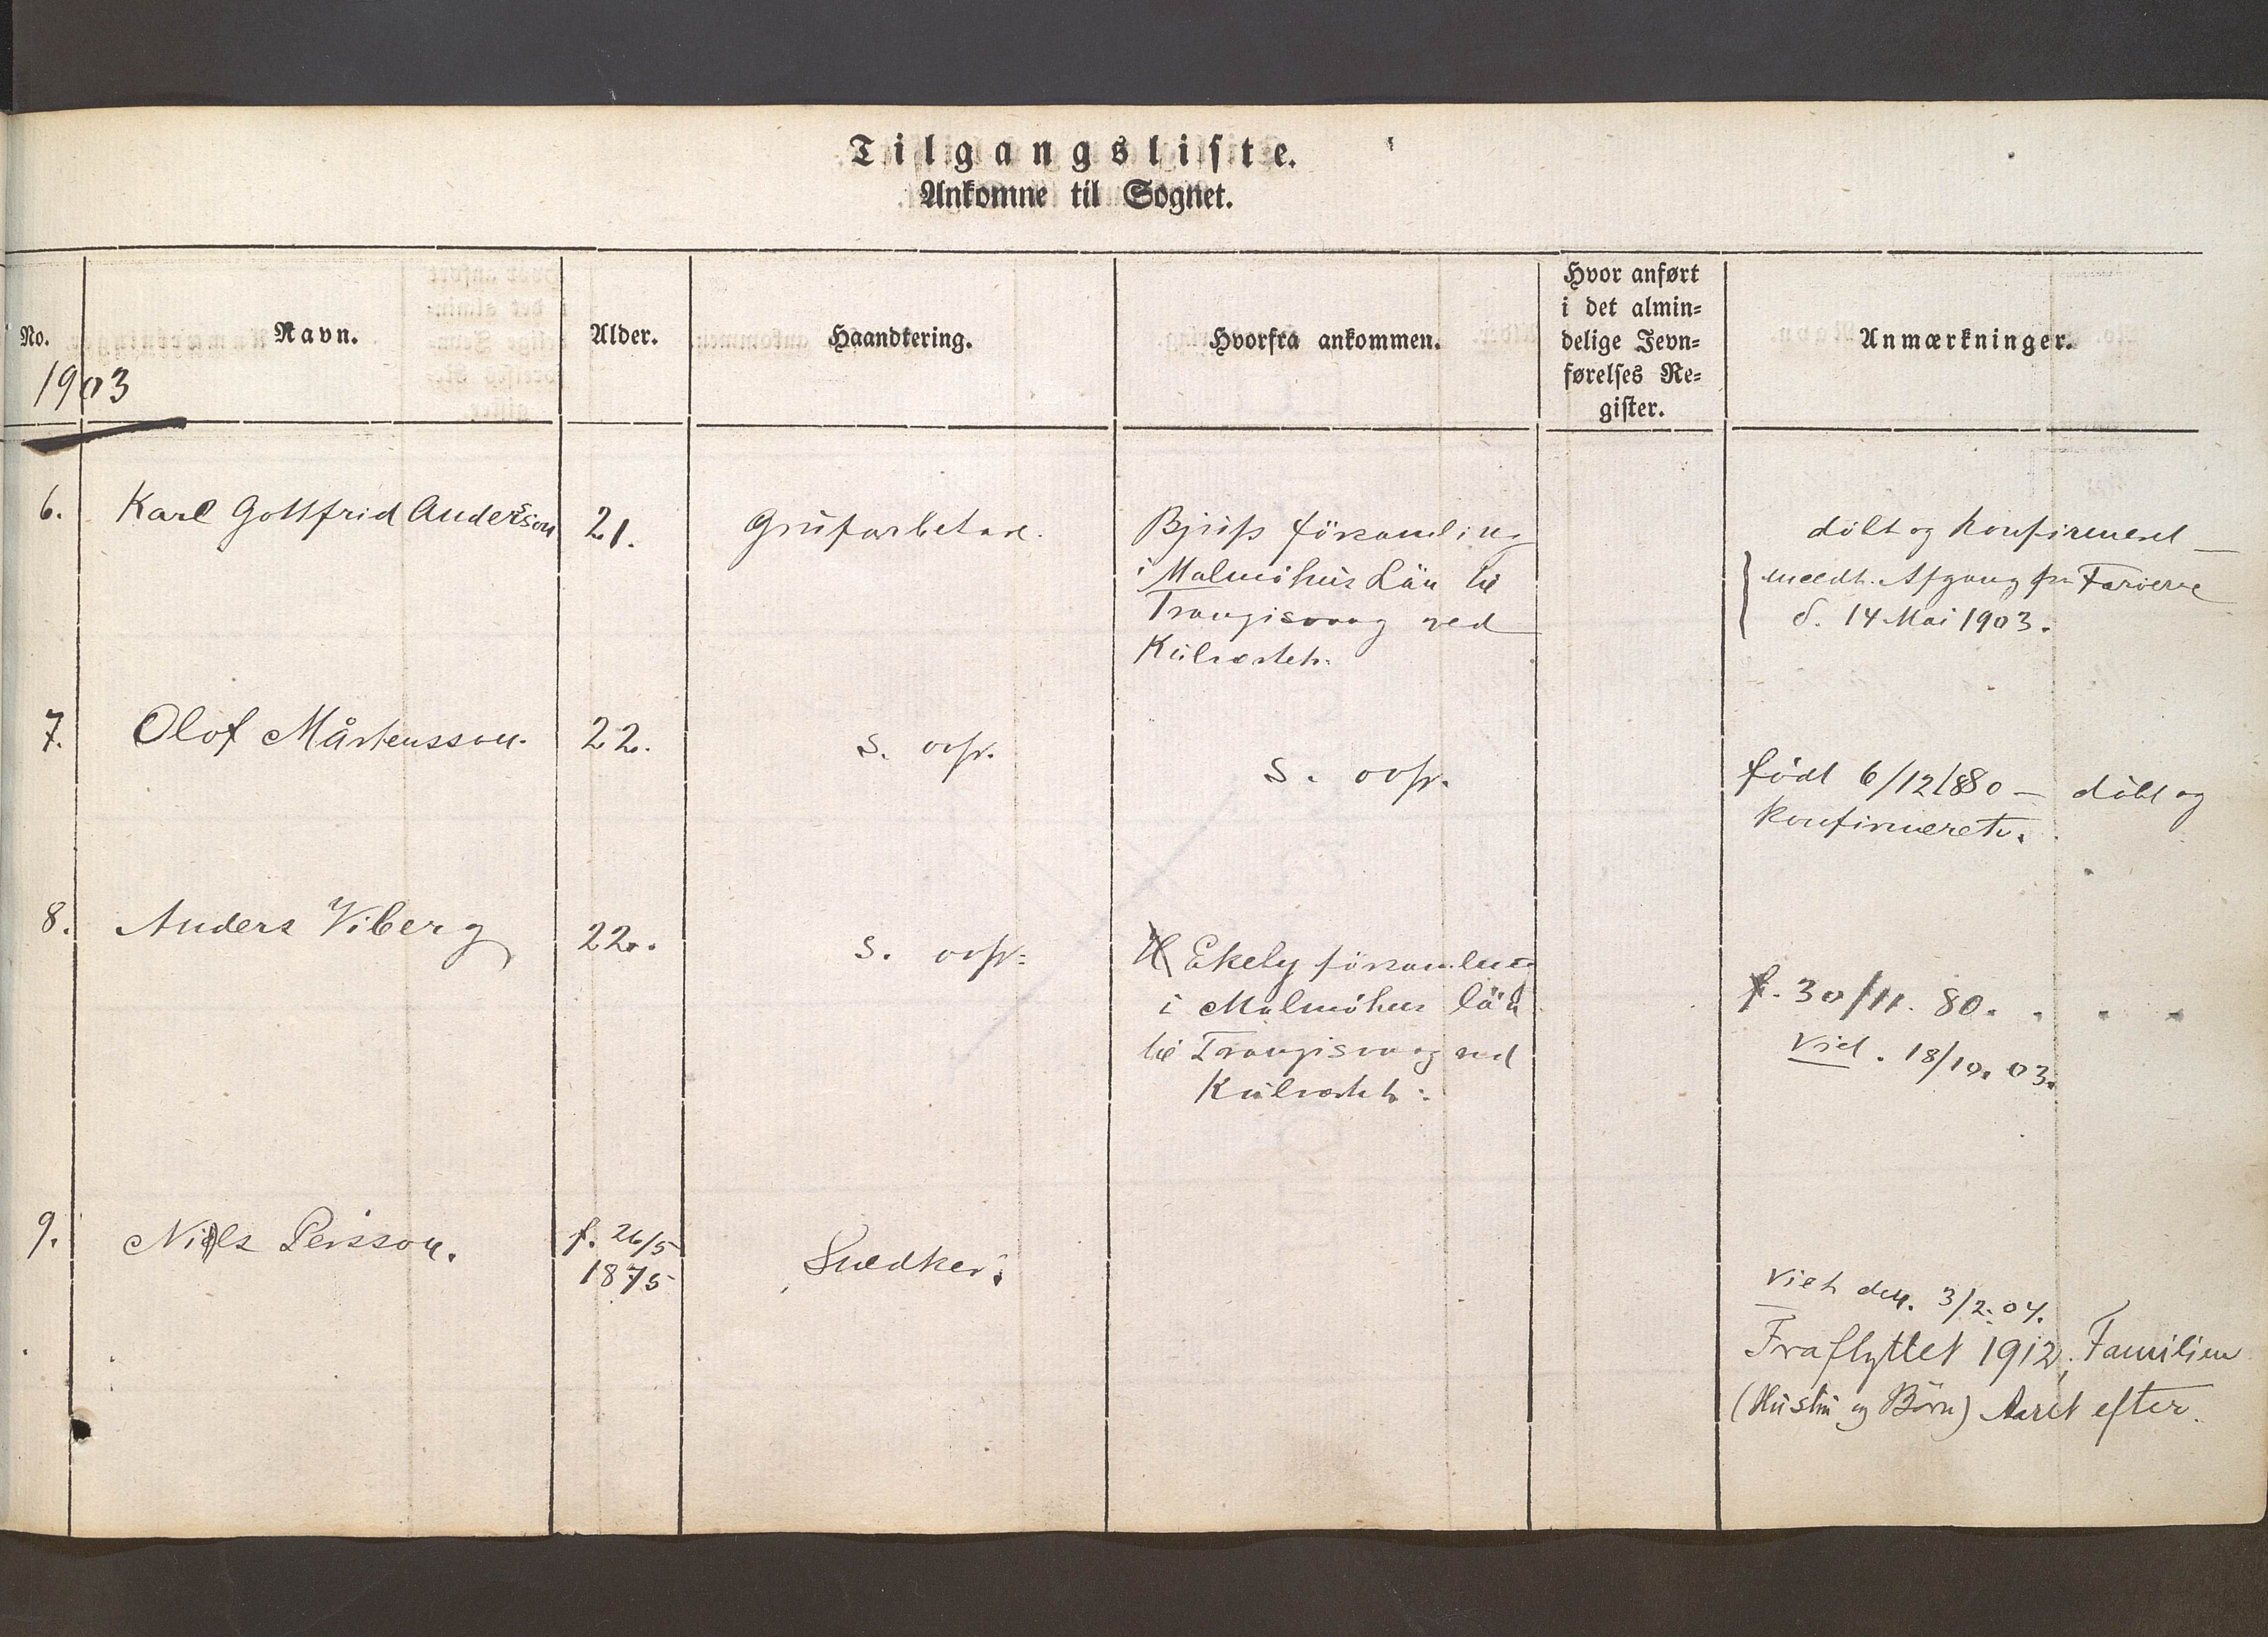 Tilgangsliste.
Ankomne til Sognet.
No.
Navn.
Alder.
Haandtering.
Hvorfra ankommen.
Hvor anført
i det almin-
delige Jevn-
førelses Re-
gister.
Anmærkninger.
1903
6.
Karl Gottfrid Andersson
21.
Grufarbetare.
Bjufs församling
i Malmöhus Län til
Trangisvaag ved
døbt og konfirmeret
meldt Afgang fra Færøerne
d. 14 Mai 1903.
7.
Olof Mårtensson.
22.
s. ovfr.
s. ovfr.
född 6/12 1880 – döbt og
konfirmeret.
8.
Anders Viberg
22.
s. ovfr.
Ekeby församling
i Malmöhus län
til Trangisvaag ved
f. 30/11. 80. " " "
viet. 18/10. 03.
9.
Niels Persson.
f. 26/5
1875
Snedker.
viet den. 3/2. 04.
Fraflyttet 1912; Familien
(Hustru og Börn) Aaret efter.